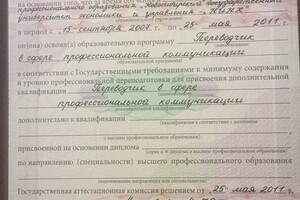 университет экономики и управления "НИНХ"
в период с 15 сентября 2007 по 25 мая 2011 г.
он(а) освоил(а) образовательную программу Переводчик
в сфере профессиональной коммуникации
в соответствии с Государственными требованиями к минимуму содержания
и уровню профессиональной переподготовки для присвоения дополнительной
квалификации Переводчик в сфере
профессиональной коммуникации
дополнительно к квалификации
присвоенной на основании диплома
(о высшем профессиональном образовании)
по направлению (специальности) высшего профессионального образования
Государственная аттестационная комиссия решением от 25 мая 2011 г.